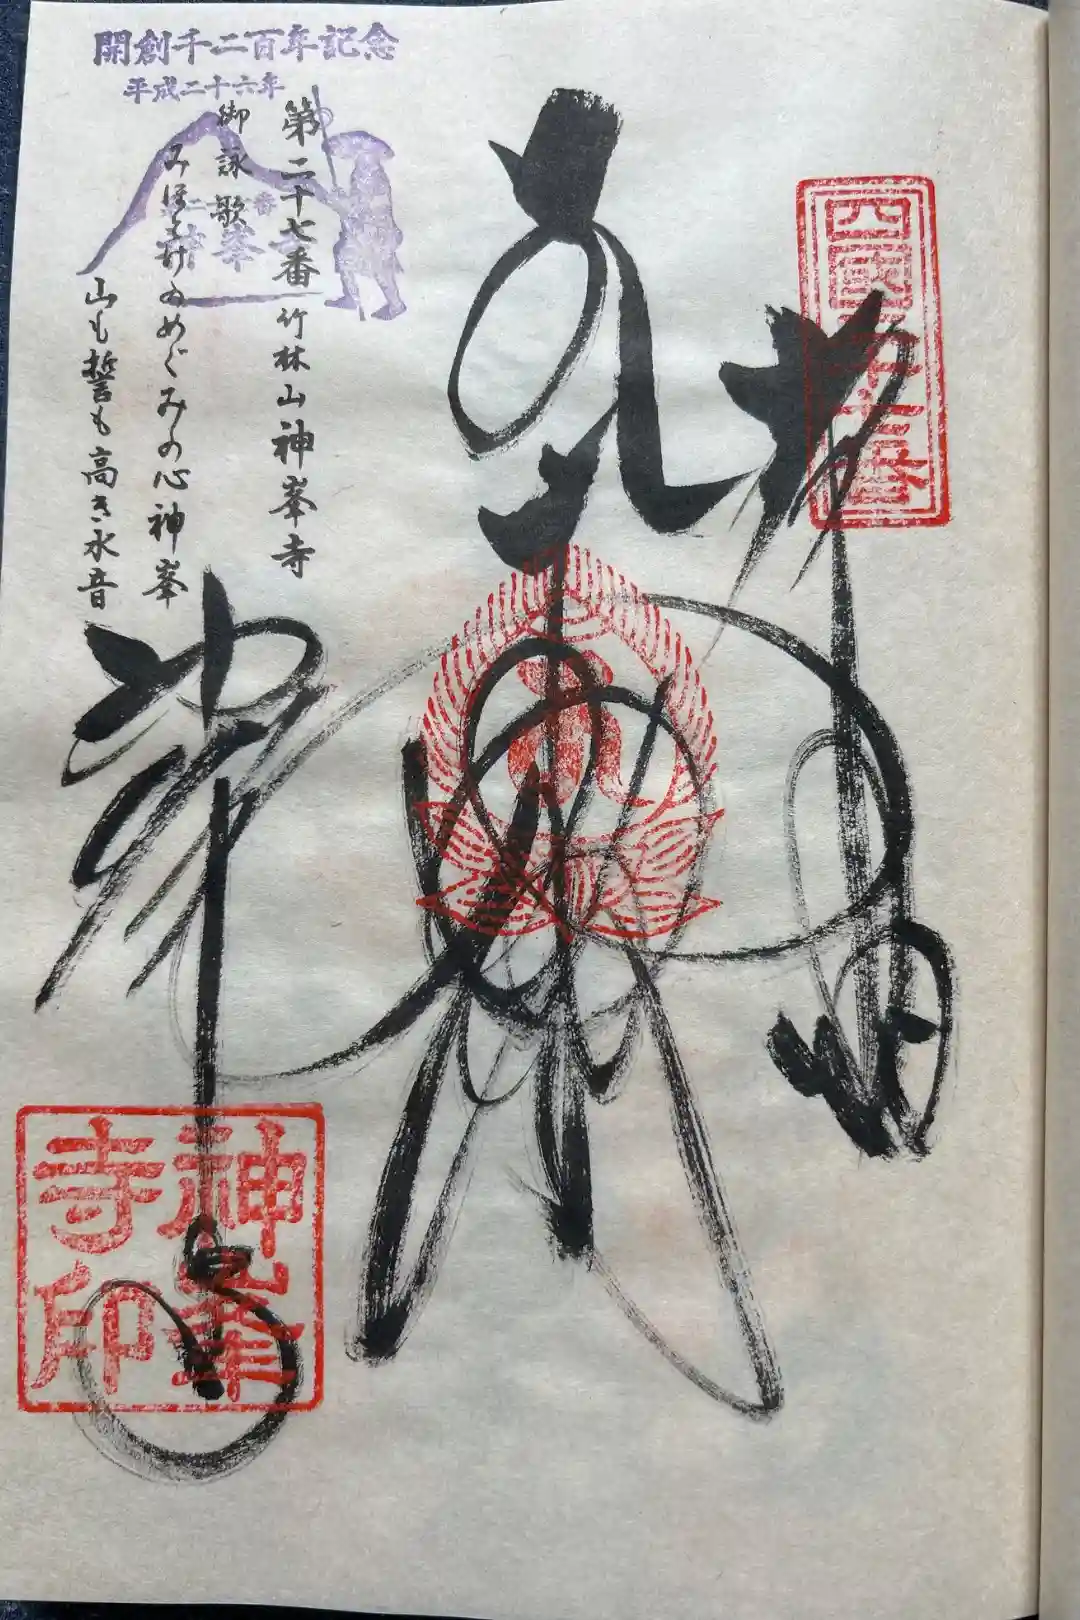 開創千二百年記念
平成二十六年
第二十七番 竹林山神峯寺
御詠歌
みほとけのめぐみの心神峯
山も誓も高き水音
四国二十七番
奉納
神峯寺
神峯寺印